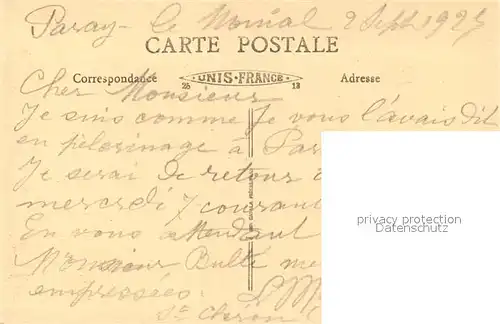 Paray-le Monial 2 Sept 1927
CARTE POSTALE
Correspondance UNIS-FRANCE Adresse
26 13
Cher Monsieur
Je suis comme je vous l'avais dit
en pèlerinage à Par
Je serai de retour
mercredi 7 courant
En vous attendant
Monsieur Bulté me
empressées.
St Chéron
privacy protection
www.oldthing.de